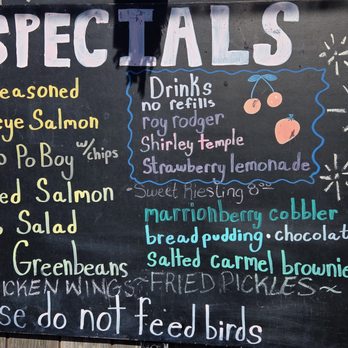 SPECIALS
easoned
eye Salmon
o Po Boy w/chips
ed Salmon
Salad
Greenbeans
Drinks
no refills
roy rodger
Shirley temple
Strawberry lemonade
-Sweet Riesling 8⁰⁰
marrionberry cobbler
bread pudding · chocolat
salted carmel brownie
CKEN WINGS ~FRIED PICKLES~
se do not feed birds